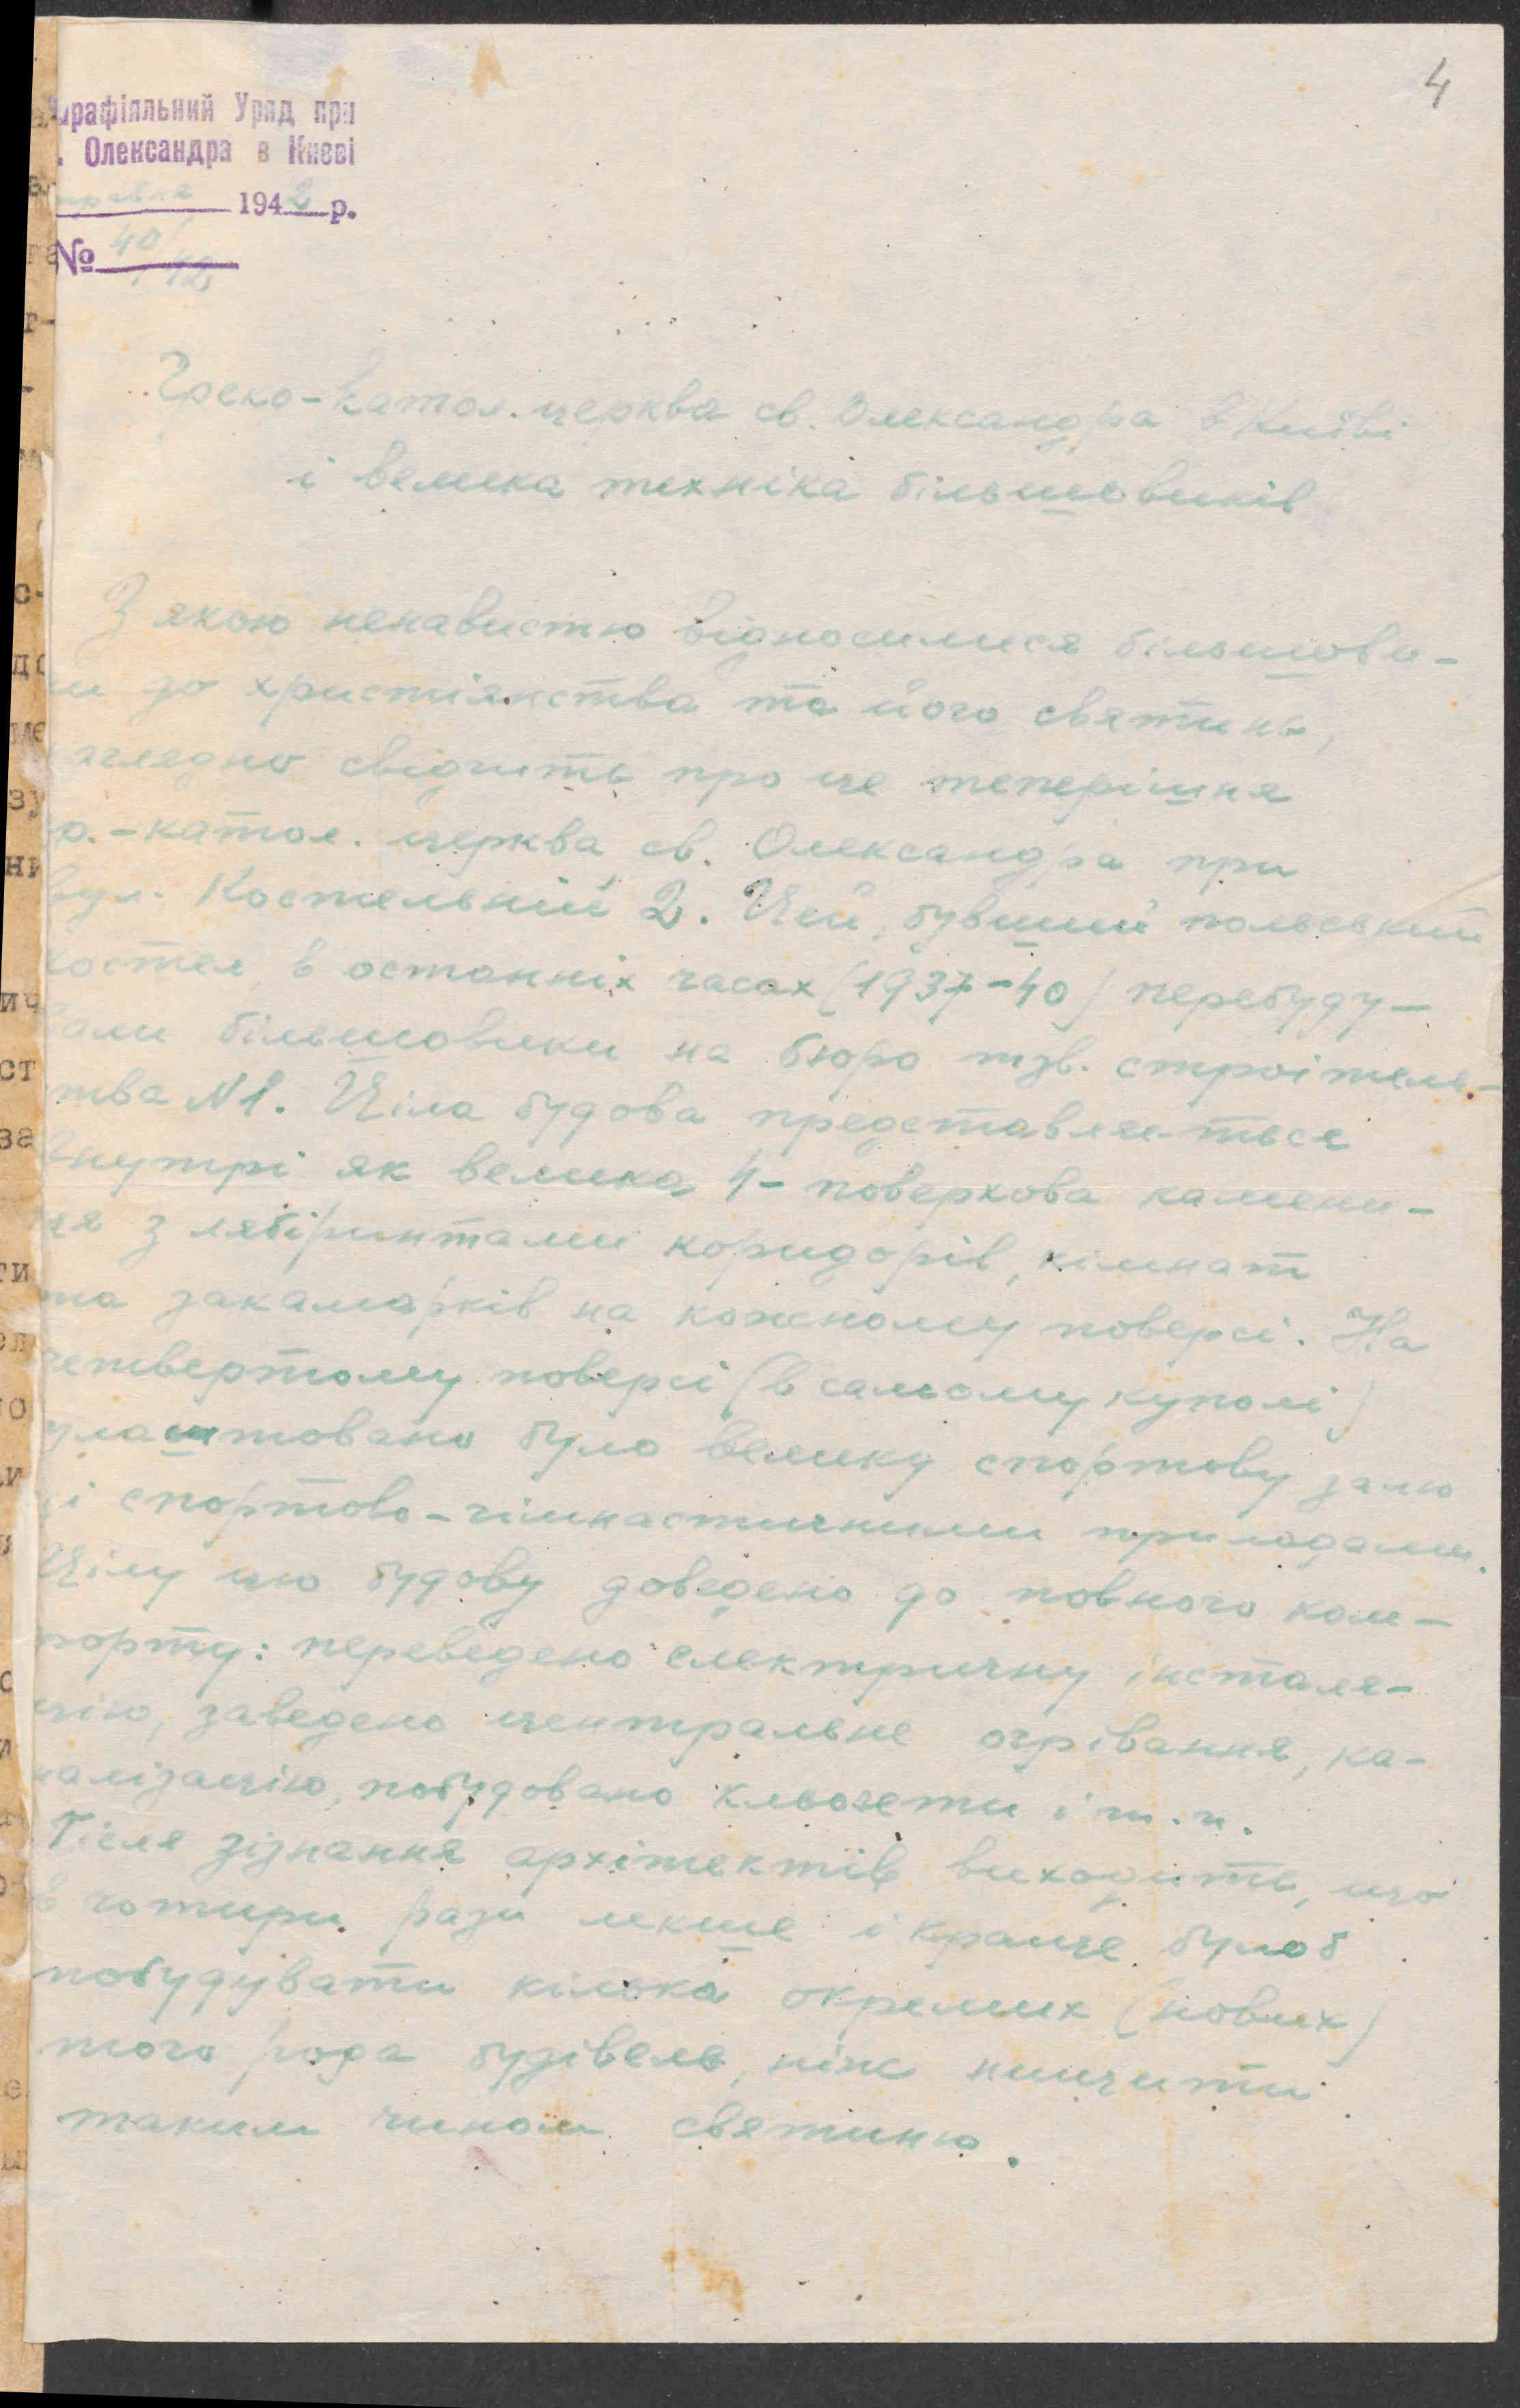 4
Парафіяльний Уряд при
. Олександра в Києві
травня 1942 р.
№ 40/42
Греко-катол. церква св. Олександра в Київі
і велика техніка більшовиків
З якою ненавистю відносилися більшови-
ки до христіянства та його святинь,
наглядно свідчить про це теперішня
гр.-катол. церква св. Олександра при
вул. Костельній 2. Цей, бувший польський
костел, в останніх часах (1937-40) перебуду-
вали більшовики на бюро тзв. строітель-
тва N1. Ціла будова представляється
внутрі як велика 4-поверхова камени-
ця з лябіринтами коридорів, кімнат
та закамарків на кожному поверсі. На
четвертому поверсі (в самому куполі)
улаштовано було велику спортову залю
зі спортово-гімнастичними приладами.
Цілу цю будову доведено до повного ком-
форту: переведено електричну інсталя-
цію, заведено центральне огрівання, ка-
налізацію, побудовано кльозети і т. п.
Після зізнання архітектів виходить, що
в чотири рази лекше і краще булоб
побудувати кілька окремих (нових)
того рода будівель, ніж нищити
таким чином святиню.